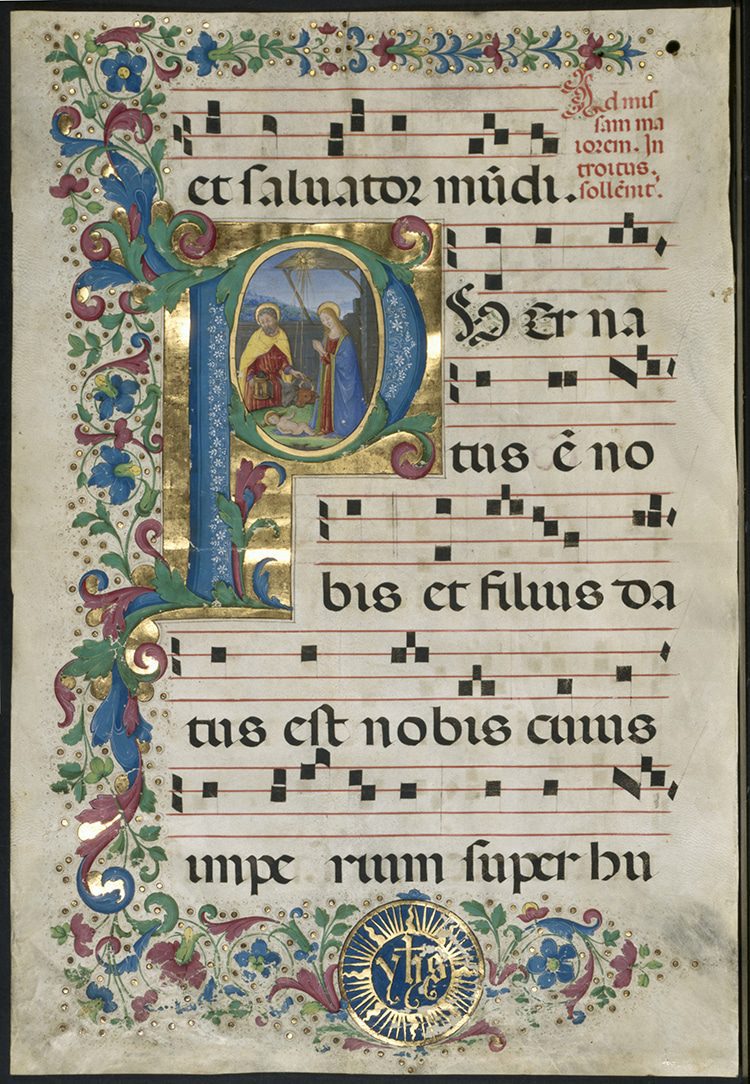 et saluator mūdi.
Ad mis
sam ma
iorem. In
troitus.
sollēnit'.
PU Er na
tus ē no
bis et filius da
tus est nobis cuius
impe rium super hu
yhs